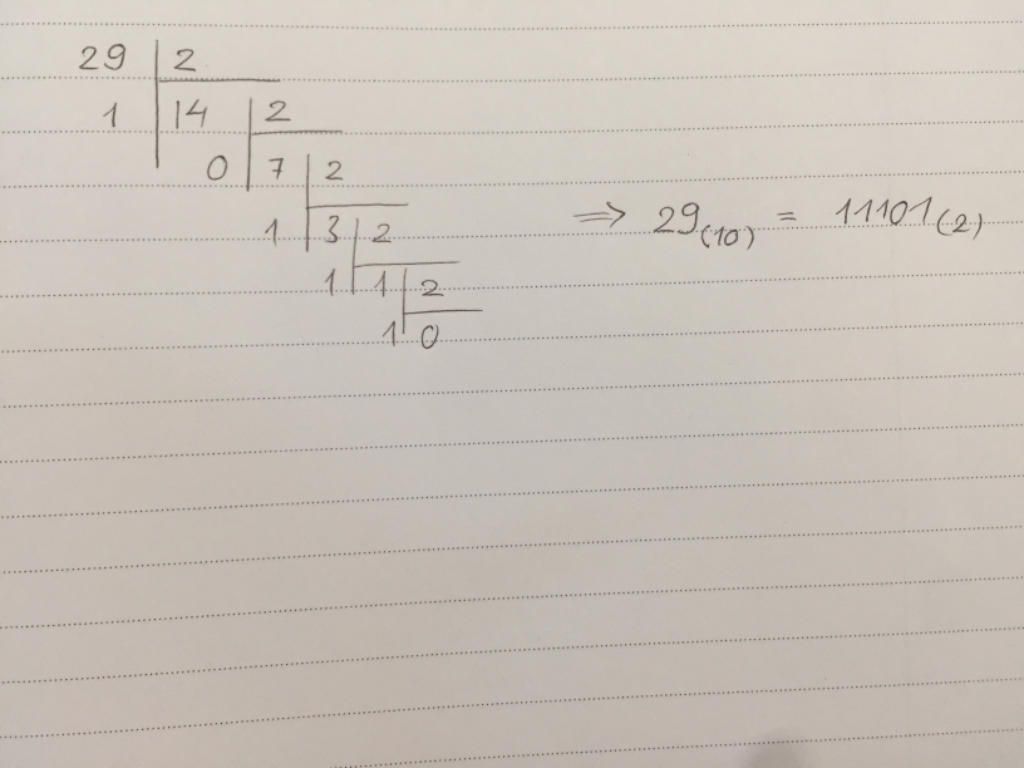 29 2
1 14 2
0 7 2
1 3 2
1 1 2
1 0
⇒ 29(10) = 11101(2)